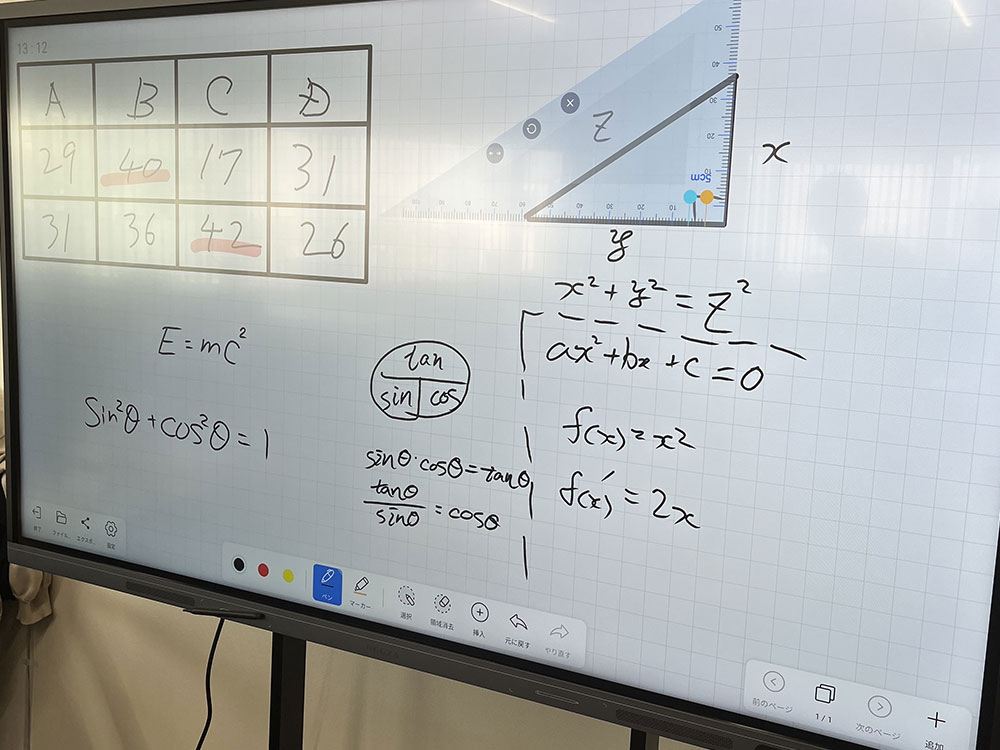 13:12
A B C D
29 40 17 31
31 36 42 26
z
x
y
5cm
50
40
30
20
10
100 90 80 70 60 50 40 30 20 10
x² + y² = z²
ax² + bx + c = 0
f(x) = x²
f(x)′ = 2x
E = mc²
sin²θ + cos²θ = 1
tan
sin cos
sinθ·cosθ = tanθ
tanθ
sinθ
= cosθ
終了 ファイル エクスポ.. 設定
ペン マーカー 選択 領域消去 挿入 元に戻す やり直す
前のページ 1/1 次のページ 追加